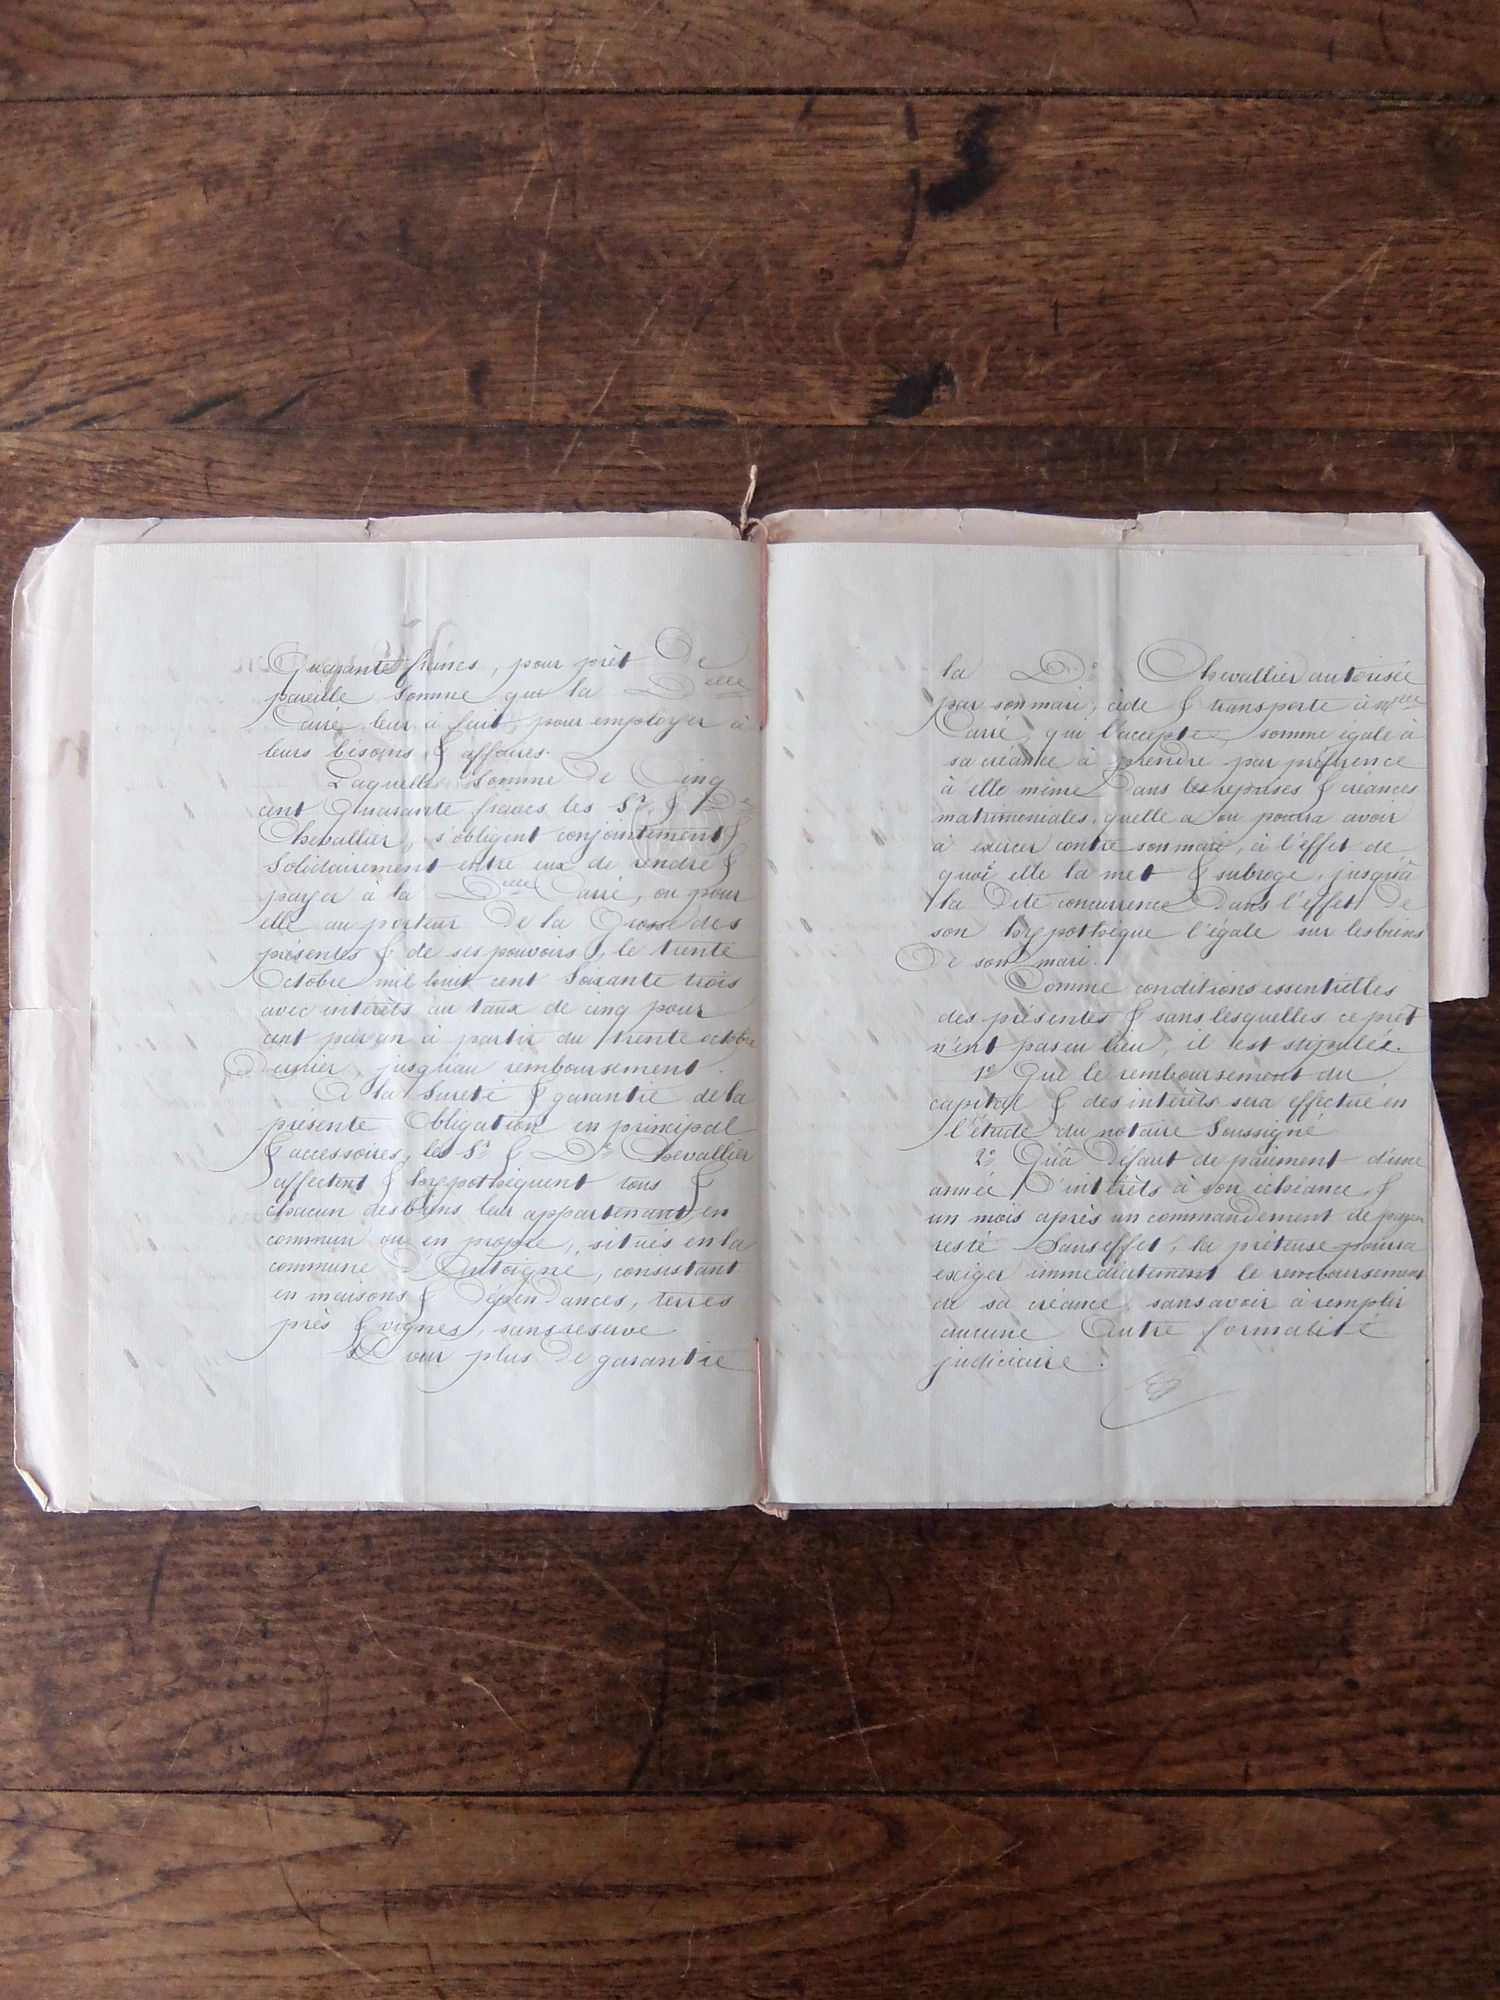 Quarante francs, pour prêt De
pareille Somme que la Delle
Carré leur a fait pour employer à
leurs bésoins & affaires.
Laquelle Somme De Cinq
cent Quarante francs les Sr & De
Chevallier, s'obligent conjointement &
Solidairement entre eux de rendre &
payer à la Delle Carré, ou pour
elle au porteur De la Grosse des
présentes & de ses pouvoirs, le trente
Octobre mil huit cent Soixante trois
avec intérêts au taux de cinq pour
cent par an à partir du trente octobre
Dernier, jusqu'au remboursement.
A la Sureté & garantie de la
présente Obligation en principal
& accessoires, les Sr & De Chevallier
affectent & hypothèquent tous &
chacun des biens leur appartenant, en
commun ou en propre, situés en la
commune D'Antoigné, consistant
en maisons & Dépendances, terres
près & vignes, sans reserve
Pour plus De garantie
la De Chevallier autorisée
par son mari, cède & transporte à Melle
Carré, qui l'accepte somme égale à
sa créance à prendre par préférence
à elle même Dans les reprises & créances
matrimoniales, quelle a ou pourra avoir
à exercer contre son mari, à l'effet de
quoi elle la met & subroge, jusqu'à
la Dite concurrence Dans l'effet De
son hypothèque légale sur les biens
De son mari.
Comme conditions essentielles
des présentes & sans lesquelles ce prêt
n'ent pas eu lieu, il est stipulé.
1o Que le remboursement du
capital & des intérêts sera effectué en
l'étude du notaire Soussigné
2o Qu'à Défaut de paiement d'une
année D'intérêts à son échéance, &
un mois après un commandement de payer
resté Sans effet, la prêteuse pourra
exiger immédiatement le remboursement
de sa créance, sans avoir à remplir
aucune Autre formalité
judiciaire.